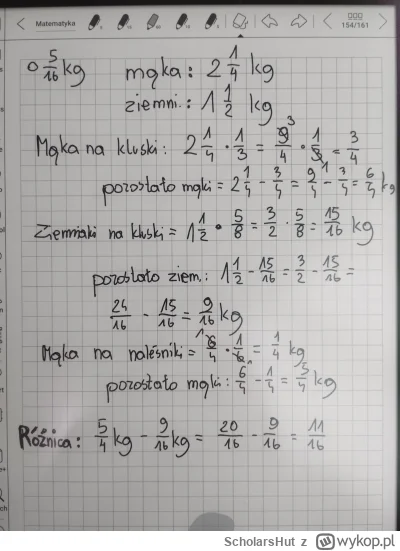 Matematyka 154/161
o 5/16 kg mąka: 2 1/4 kg
ziemni.: 1 1/2 kg
Mąka na kluski: 2 1/4 · 1/3 = 9/4 3 · 1/3 = 3/4
pozostało mąki = 2 1/4 - 3/4 = 9/4 - 3/4 = 6/4 kg
Ziemniaki na kluski = 1 1/2 · 5/8 = 3/2 · 5/8 = 15/16 kg
pozostało ziem.: 1 1/2 - 15/16 = 3/2 - 15/16 =
24/16 - 15/16 = 9/16 kg
Mąka na naleśniki = 1 6/4 · 1/6 = 1/4 kg
pozostało mąki: 6/4 - 1/4 = 5/4 kg
Różnica: 5/4 kg - 9/16 kg = 20/16 - 9/16 = 11/16
ScholarsHut z wykop.pl